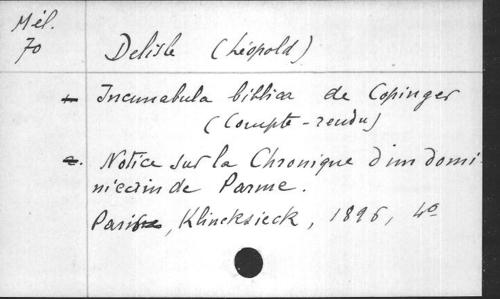 Mél.
70
Delisle (Léopold)
1. Incunabula biblica de Copinger
(Compte-rendu)
2. Notice sur la Chronique d'un domi-
nicain de Parme.
Paris, Klincksieck, 1896, 4º